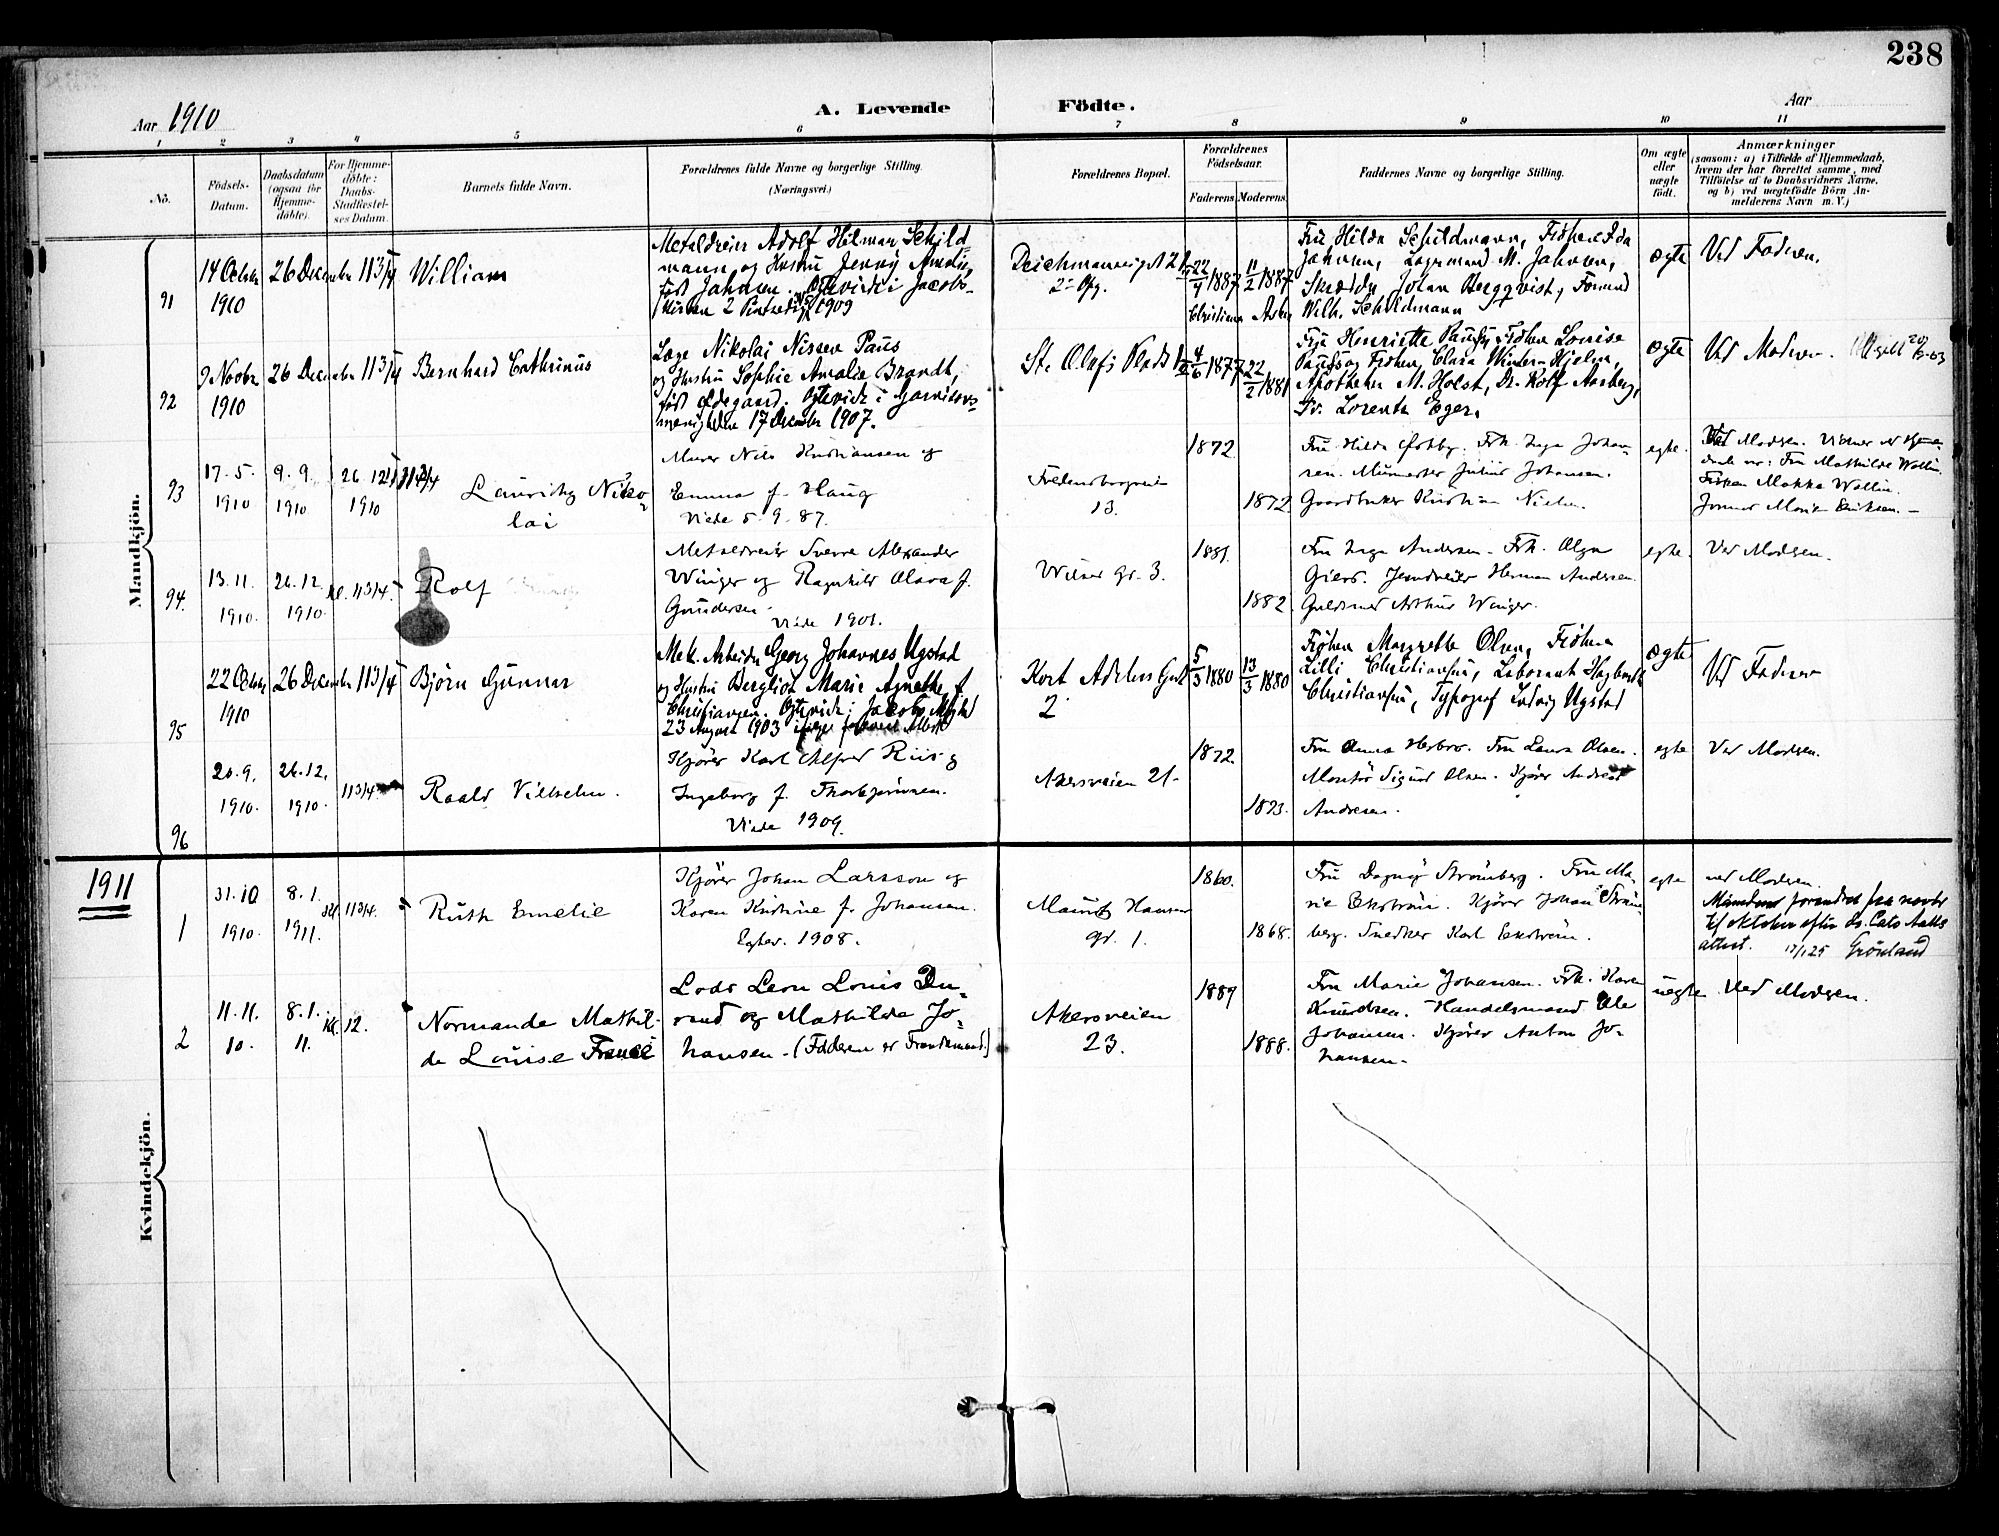 238
Aar 1910
A. Levende Födte.
Aar
1 2 3 4 5 6 7 8 9 10 11
No.
Födsels-
Datum.
Daabsdatum
(ogsaa for
Hjemme-
döbte).
For Hjemme-
döbte:
Daabs-
Stadfæstel-
ses Datum.
Barnets fulde Navn.
Forældrenes fulde Navne og borgerlige Stilling.
(Næringsvei.)
Forældrenes Bopæl.
Forældrenes
Födselsaar.
Faderens
Moderens
Faddernes Navne og borgerlige Stilling.
Om ægte
eller
uægte
født.
Anmærkninger
(saasom: a) i Tilfælde af Hjemmedaab,
hvem der har forrettet samme, med
Tilföielse af to Daabsvidners Navne,
og b) ved uægtefödte Börn An-
melderens Navn m. V.)
Mandkjön.
91
14 Octobr
1910
26 December
11 3/4
William
Metaldreier Adolf Hilmar Schild
mann og Hustru Jenny Amalie,
født Jahnsen. Ægteviede i Jacobs-
kirken 2 Pintsedag 1909
Deichmansgt N 21
2den Opg.
22/4 1887
Christiania
11/2 1887
Asker
Fru Hilda Schildmann, Frøken Ida
Jahnsen, Lagermand M. Jahnsen,
Skrædder Johan Bergqvist, Formand
Wilh. Schildmann
ægte
Ved Faderen.
92
9 Novbr
1910
26 December
11 3/4
Bernhard Cathrinus
Læge Nikolai Nissen Paus
og Hustru Sophie Amalie Brandt,
født Ødegaard. Ægteviede i Garnisons-
menigheden 17 December 1907.
St. Olafs Plads 1
4/6 1877
22/2 1881
Fru Henriette Paus, Frøken Louise
Paus og Frøken Clara Winter-Hjelm,
Apotheker M. Holst, Dr. Rolf Aasberg,
Dr. Lorentz Eger.
ægte
Ved Moderen.
93
17. 5.
1910
9. 9.
1910
26. 12
1910
11 3/4
Lauritz Niko-
lai
Murer Nils Kristiansen og
Emma f. Haug
Viede 5. 9. 87.
Fredensborgveien
13.
1872
1872
Fru Hilda Østby. Frk. Inga Johan-
sen. Murmester Julius Johansen.
Gaardbruker Kristian Nielsen.
egte.
Ved Modren. Vidner ved hjemme-
daab var: Fru Mathilde Wallin.
Frøken Makka Wallin.
Jormor Marie Eriksen.
94.
13. 11.
1910.
26. 12.
1910.
kl. 11 3/4.
Rolf
Metaldreier Sverre Alexander
Winger og Ragnhild Olava f.
Gundersen.
Viede 1901.
Wilses gt. 3.
1881.
1882.
Fru Inga Andersen. Frk. Olga
Giers. Jerndreier Herman Andersen.
Guldsmed Arthur Winger.
egte.
Ved Modren.
95
22 Octobr
1910
26 December
11 3/4
Björn Gunnar
Mek. Arbeider Georg Johannes Ugstad
og Hustru Bergliot Marie Agnethe f.
Christiansen. Ægteviede i Jakobs Mghd
23 August 1903 ifølge forevist Attest
Kort Adelers Gade
2
5/3 1880
13/3 1880
Frøken Margrethe Olsen, Frøken
Lilli Christiansen, Laborant Hagbarth
Christiansen, Typograf Ludvig Ugstad
ægte
Ved Faderen
96
20. 9.
1910.
26. 12.
1910.
11 3/4
Roald Vilhelm.
Kjører Karl Alfred Riis og
Ingeborg f. Thorbjørnsen.
Viede 1909.
Akersveien 21.
1872.
1873.
Fru Anna Herbro. Fru Laura Olsen.
Montør Sigurd Olsen. Kjører Andreas
Andresen.
egte
Ved Modren.
1911
Kvindekjön.
1
31. 10
1910.
8. 1.
1911.
Kl. 11 3/4.
Ruth Emelie
Kjører Johan Larsson og
Karen Kristine f. Johansen.
Egtev. 1908.
Mauritz Hansens
gt. 1.
1860.
1868.
Fru Dagny Strømberg. Fru Ma-
rie Ekstrøm. Kjører Johan Strøm-
berg. Snedker Karl Ekstrøm.
egte
ved Modren.
Maaneden forandret fra novbr
til oktober efter dr. Cato Aalls
attest. 17/1 25 Grönland
2
11. 11.
10.
8. 1.
11.
Kl. 12.
Normande Mathil-
de Louise France
Lods Leon Louis Du-
rand og Mathilde Jo-
hansen. (Faderen er Franskmand.)
Akersveien
23.
1889
1888.
Fru Marie Johansen. Frk. Karen
Knudsen. Handelsmand Ole
Johansen. Kjører Anton Jo-
hansen.
uegte
Ved Modren.